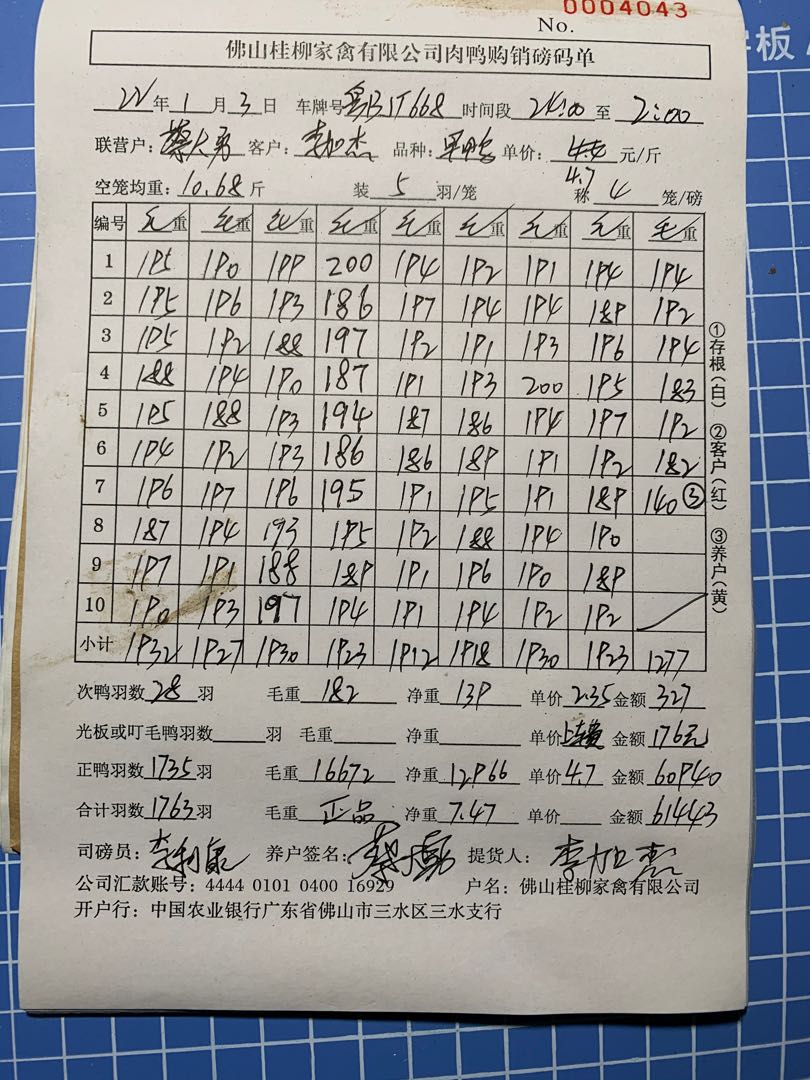 0004043
No.
佛山桂柳家禽有限公司肉鸭购销磅码单
22年1月3日 车牌号 时间段 24:00 至 2:00
联营户:蔡大勇 客户:李加杰 品种:果鸭 单价:4.4 元/斤
4.7
空笼均重:10.68斤 装 5 羽/笼 称 4 笼/磅
编号 毛重 毛重 毛重 毛重 毛重 毛重 毛重 毛重 毛重
1 195 190 199 200 194 192 191 194 194
2 195 196 193 186 197 194 194 189 192
3 195 192 188 197 192 191 193 196 194
4 188 194 190 187 191 193 200 195 183
5 195 188 193 194 187 186 194 197 192
6 194 192 193 186 186 189 191 192 182
7 196 197 196 195 191 195 191 189 140 ③
8 187 194 193 195 192 188 194 190
9 197 191 188 189 191 196 190 189
10 190 193 197 194 191 194 192 192
小计 1932 1927 1930 1923 1912 1918 1930 1923 1277
①存根(白) ②客户(红) ③养户(黄)
次鸭羽数 28 羽 毛重 182 净重 139 单价 2.35 金额 327
光板或叮毛鸭羽数 羽 毛重 净重 单价 上车费 金额 176元
正鸭羽数 1735 羽 毛重 16672 净重 12966 单价 4.7 金额 60940
合计羽数 1763 羽 毛重 正品 净重 7.47 单价 金额 61443
司磅员:李利康 养户签名:蔡大勇 提货人:李加杰
公司汇款账号:4444 0101 0400 16929 户名:佛山桂柳家禽有限公司
开户行:中国农业银行广东省佛山市三水区三水支行
板